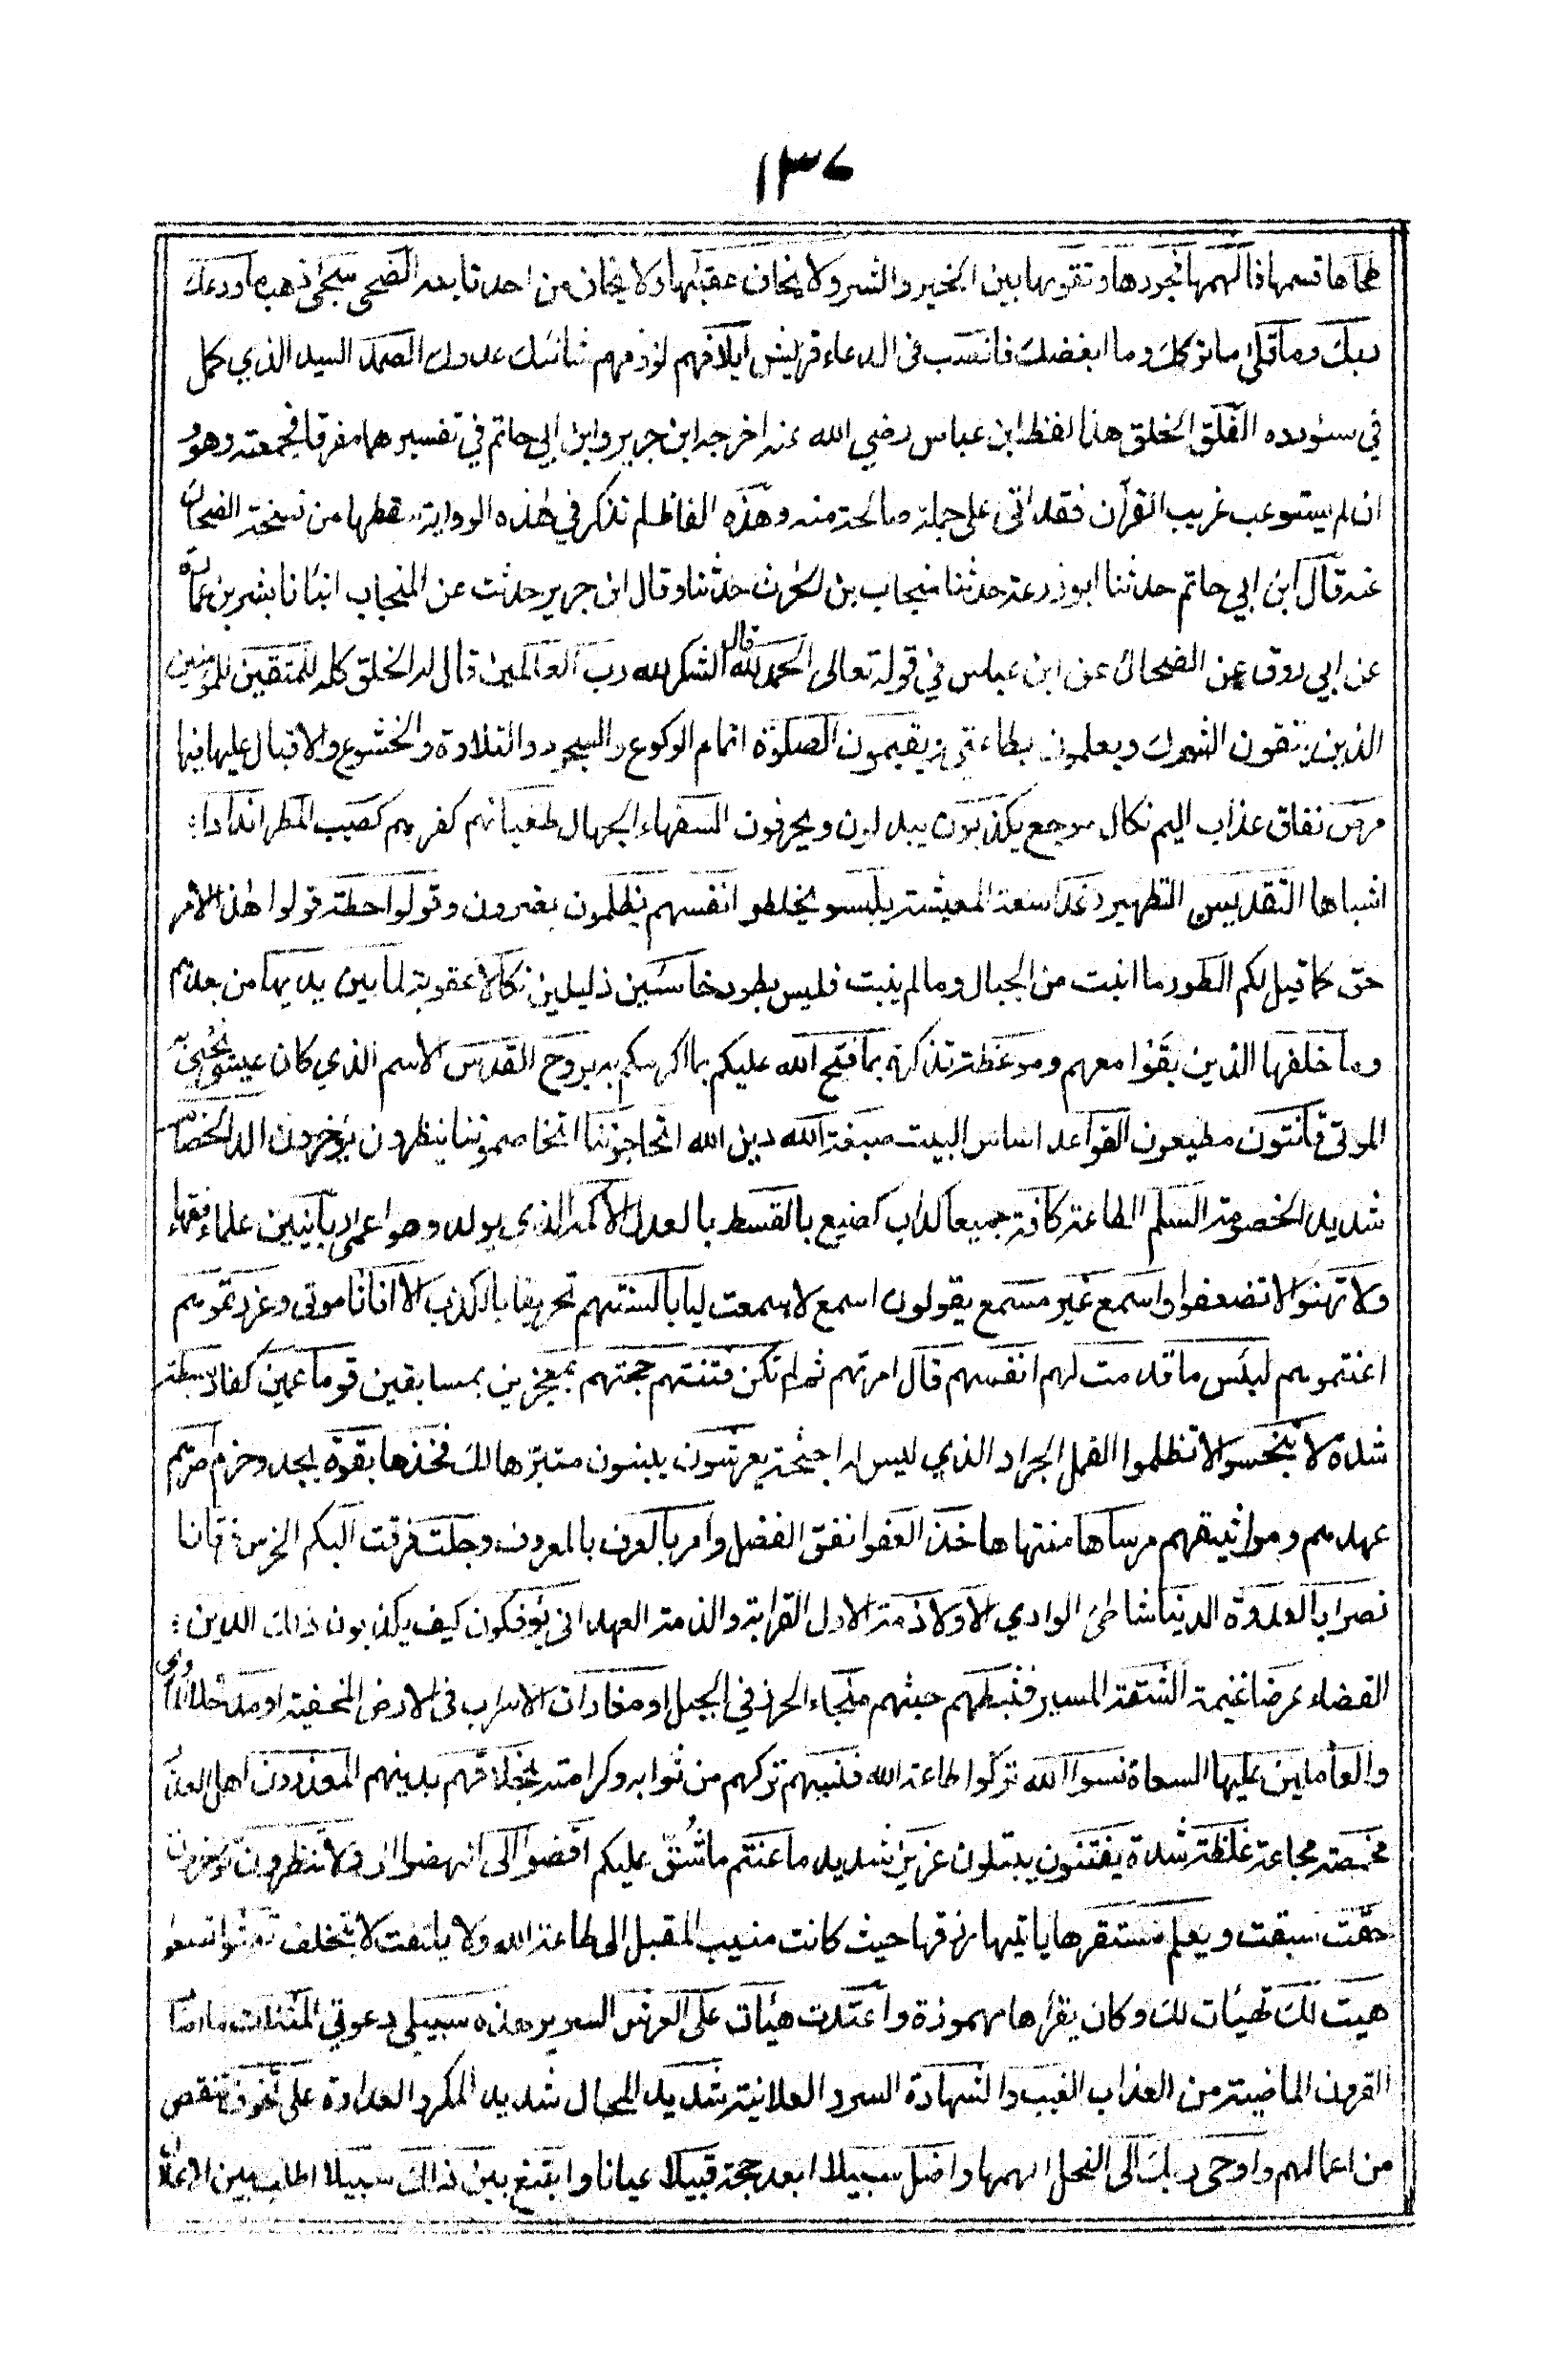 ١٣٧
طحاها قسمها فالهمها فجورها وتقوىها بين الخير والشر ولا يخاف عقبٰها ولا يخاف من احد تابعه الضحى سجىٰ ذهب ما ودعك
ربك وما قلى ما تركك وما ابغضك فانصب فى الدعاء قريش ايلافهم لزومهم شانئك عدوك الصمد السيد الذي كمل
في سؤدده الفلق الخلق هذا لفظ ابن عباس رضي الله عنه اخرجه ابن جرير وابن ابي حاتم في تفسيرهما مفرقا فجمعته وهو و
ان لم يستوعب غريب القرآن فقد اتى على جملة صالحة منه وهذه الفاظ لم تذكر في هٰذه الرواية سقطها من نسخة الضحاك
عنه قال ابن ابي حاتم حدثنا ابو زرعة حدثنا منجاب بن الحٰرث حدثنا وقال ابن جرير حدثت عن المنجاب انبأنا بشر بن عمارة
عن ابي روق عن الضحاك عن ابن عباس في قوله تعالى الحمد لله قال الشكر لله رب العالمين قال له الخلق كله للمتقين للمؤمنين
الذين يتقون الشرك ويعلمون بطاعتي ويقيمون الصلوٰة اتمام الركوع والسجود والتلاوة والخشوع والاقبال عليها فيها
مرض نفاق عذاب اليم نكال موجع يكذبون يبدلون ويحرفون السفهاء الجهال طغيانهم كفرهم كصيب المطر اندادا:
اشباها التقديس التطهير رغدا سعة المعيشة يلبسو يخلطو انفسهم يظلمون يضرون وقولوا حطة قولوا هٰذا الامر
حق كما قيل لكم الطور ما انبت من الجبال وما لم ينبت فليس بطور خاسئين ذليلين نكالا عقوبة لما بين يديها من بعدهم
وما خلفها الذين بقوا معهم وموعظة تذكرة بما فتح الله عليكم بما اكرمكم به بروح القدس الاسم الذي كان عيسى يحيي به
الموتى قانتون مطيعون القواعد اساس البيت صبغة الله دين الله اتحاجوننا اتخاصموننا ينظرون يؤخرون الد الخصام
شديد الخصومة السلم الطاعة كافة جميعا كداب كضيع بالقسط بالعدل الاكمه الذي يولد وهو اعمى ربانيين علماء فقهاء
ولا تهنوا لا تضعفوا واسمع غير مسمع يقولون اسمع لا سمعت ليا بالسنتهم تحريفا بالكذب الا اناثا موتى وعزرتموهم
اعنتموهم لبئس ما قدمت لهم انفسهم قال امرتهم ثم لم تكن فتنتهم حجتهم بمعجزين بمسابقين قوما عمين كفار بسطة
شدة لا تبخسوا لا تظلموا القمل الجراد الذي ليس له اجنحة يعرشون يبنون متبر هالك فخذها بقوة بجد وحزم اصرهم
عهدهم ومواثيقهم مرساها منتهاها خذ العفو انفق الفضل وامر بالعرف بالمعروف وجلت فرقت البكم الخرس فرقانا
نصرا بالعدوة الدنيا شاطئ الوادي الا ولا ذمة الا ول القرابة والذمة العهد انى يؤفكون كيف يكذبون ذلك الدين:
القضاء عرضا غنيمة الشقة المسير فثبطهم حبشهم ملجاء الحرز في الجبل او مغارات الاسراب فى الارض المخفية او مدخلا الماوى
والعاملين عليها السعاة نسوا الله تركوا طاعة الله فنسيهم تركهم من ثوابه وكرامته بخلاقهم بدينهم المعذرون اهل العذر
مخمصة مجاعة غلظة شدة يفتنون يبتلون عزيز شديد ما عنتم ما شق عليكم اقضوا الى انهضوا الي ولا تنظرون تؤخرون
حقت سبقت ويعلم مستقرها ياتيها رزقها حيث كانت منيب المقبل الى طاعة الله ولا يلتفت لا يتخلف تعثوا تسعوا
هيت لك تهيئات لك وكان يقرأها مهموزة واعتدت هيئات على العرش السرير هذه سبيلي دعوتي المثلات ما اصاب
القرون الماضية من العذاب الغيب والشهادة السر والعلانية شديد المحال شديد المكر والعداوة على تخوف تنقص
من اعمالهم واوحى ربك الى النحل الهمها واضل سبيلا ابعد حجة قبيلا عيانا وابتغ بين ذلك سبيلا اطلب بين الاعلان